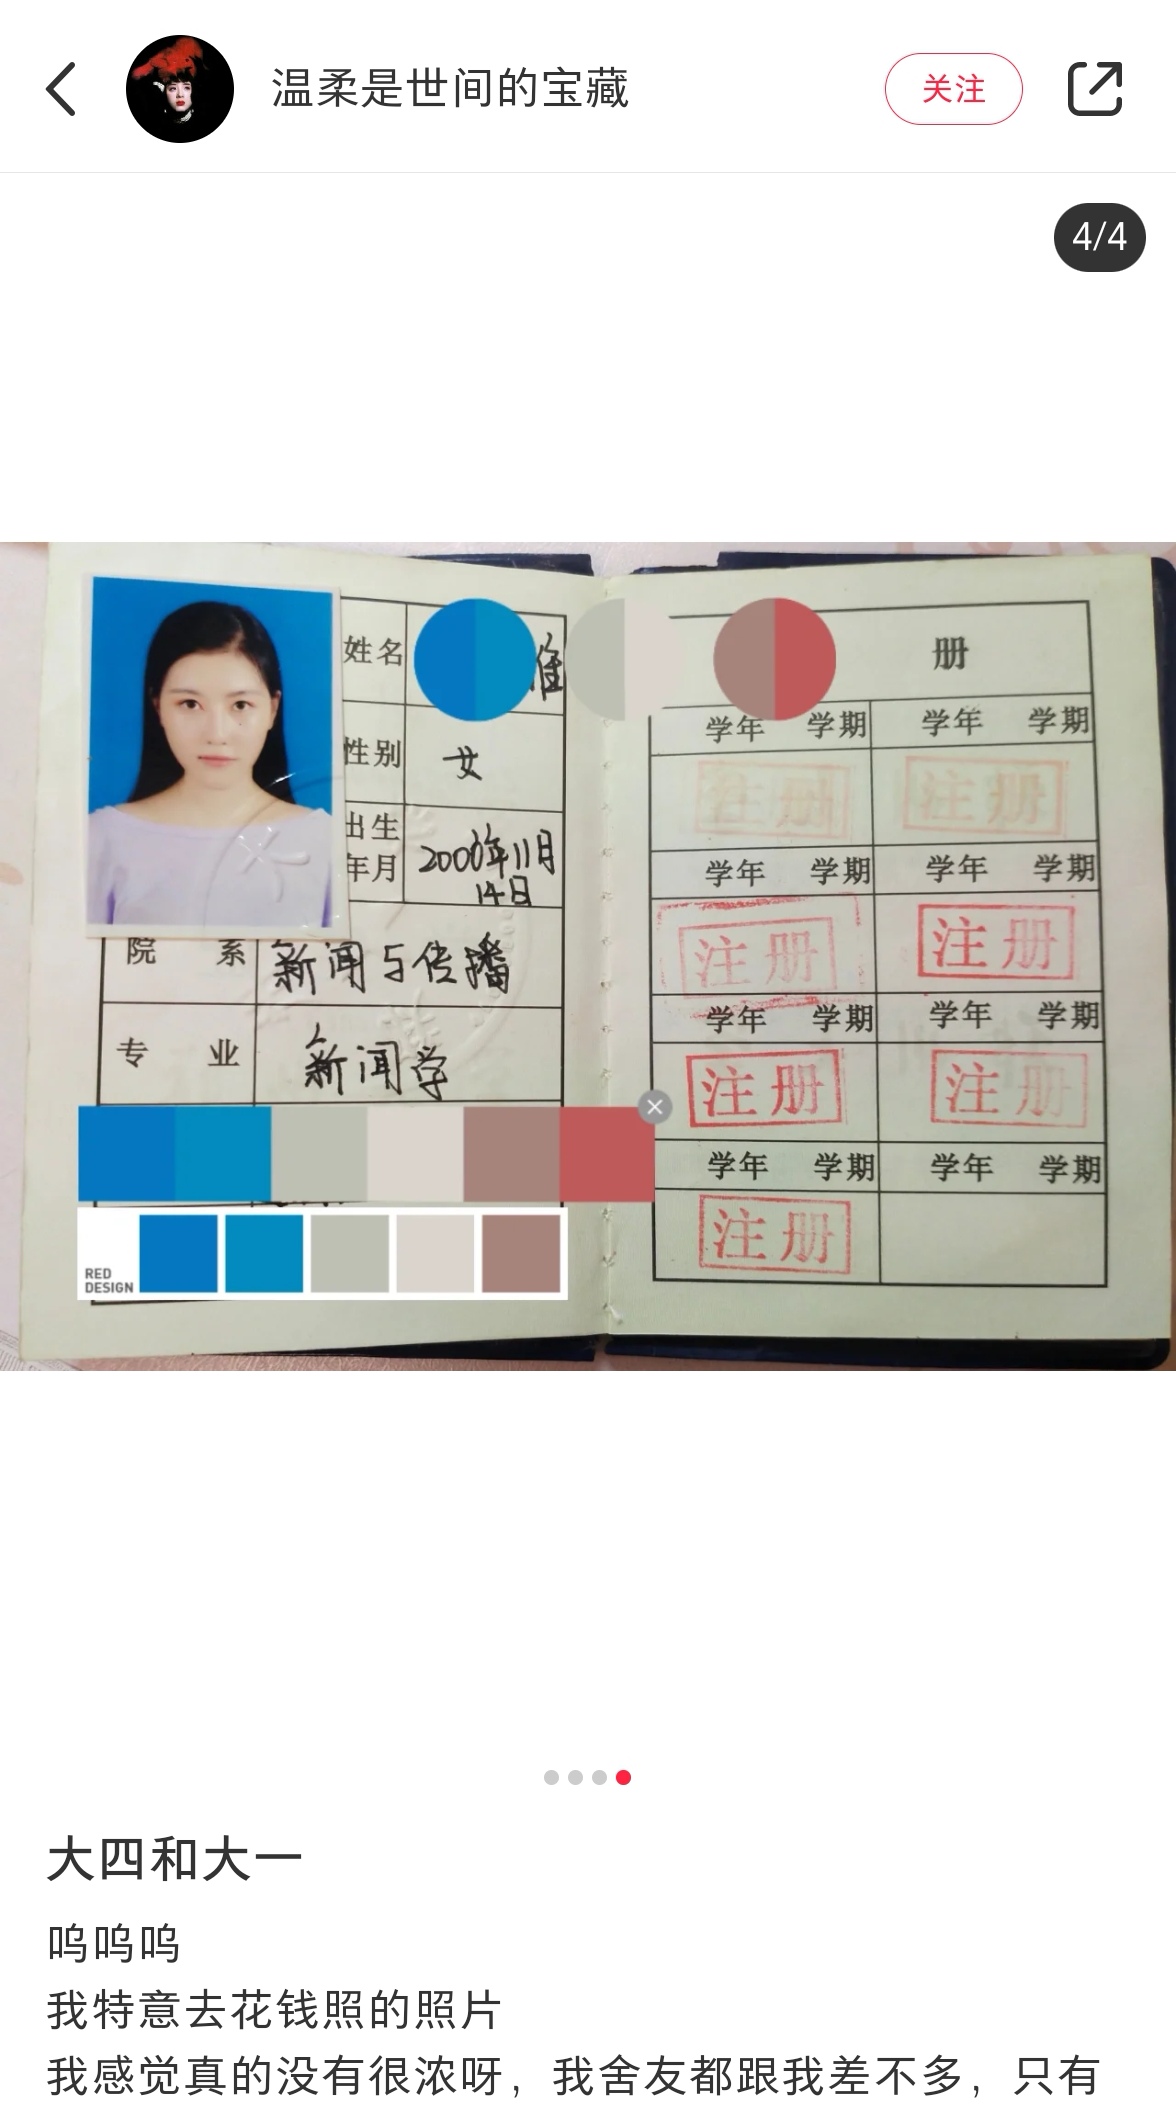 温柔是世间的宝藏
关注
4/4
姓名
性别 女
出生年月 2000年11月14日
院 系 新闻与传播
专 业 新闻学
RED
DESIGN
册
学年 学期 学年 学期
注册 注册
学年 学期 学年 学期
注册 注册
学年 学期 学年 学期
注册 注册
学年 学期 学年 学期
注册
大四和大一
呜呜呜
我特意去花钱照的照片
我感觉真的没有很浓呀，我舍友都跟我差不多，只有